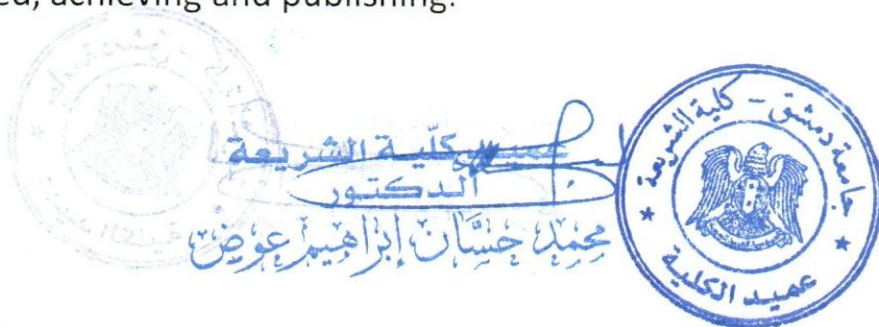 ed, achieving and publishing.
عميد كلّية الشريعة
الدكتور
محمد حسَّان إبراهيم عوض
جامعة دمشق - كلية الشريعة
عميد الكلية